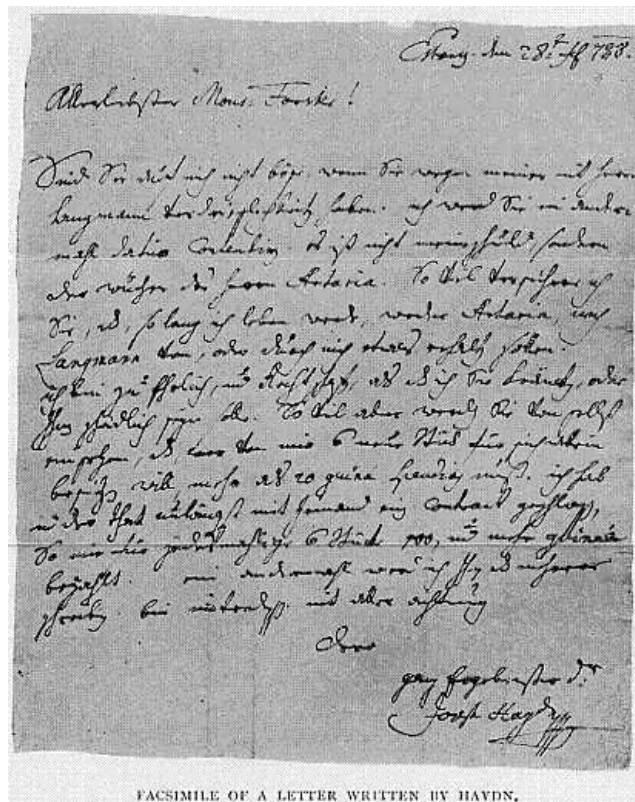 Estoraz. den 28: 788.
Allerliebster Mons. Forster!
Seid Sie nicht böse, wenn Sie wegen meiner mit Herrn
Langmann Verdrüßlichkeit haben. ich werd Sie ein ander
mahl dafür Contentiren. Es ist nicht meine schuld, sondern
der wucher des Herrn Artaria. So viel versichere ich
Sie, so lang ich leben werde, weder Artaria, noch
Langmann von, oder durch mich etwas erhalten sollen.
ich bin zu Ehrlich, und Rechtschaffen, als ich Sie kränken, oder
Ihnen schädlich seyn solle. So viel aber werden Sie von selbst
einsehen, wer von mir 6 neue Stück für sich allein
besitzen will, mehr als 20 guinee müsse. ich hab
in der that unlängst mit Jemand ein Contract geschlossen,
So mir für jedesmahlige 6 Stück 100, und mehr guinee
bezahlt. ein andermahl werd ich Ihnen mehreres
schreiben. bin unterdessen mit aller achtung
Dero
ganz Ergebenster
Joseph Haydn
FACSIMILE OF A LETTER WRITTEN BY HAYDN.